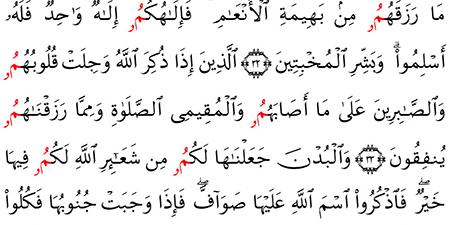 مَا رَزَقَهُمُۥ مِنۢ بَهِيمَةِ ٱلْأَنْعَٰمِ فَإِلَٰهُكُمُۥ إِلَٰهٌ وَٰحِدٌ فَلَهُۥ
أَسْلِمُوا۟ ۗ وَبَشِّرِ ٱلْمُخْبِتِينَ ٣٢ ٱلَّذِينَ إِذَا ذُكِرَ ٱللَّهُ وَجِلَتْ قُلُوبُهُمُۥ
وَٱلصَّٰبِرِينَ عَلَىٰ مَا أَصَابَهُمُۥ وَٱلْمُقِيمِى ٱلصَّلَوٰةِ وَمِمَّا رَزَقْنَٰهُمُۥ
يُنفِقُونَ ٣٣ وَٱلْبُدْنَ جَعَلْنَٰهَا لَكُمُۥ مِن شَعَٰٓئِرِ ٱللَّهِ لَكُمُۥ فِيهَا
خَيْرٌ ۖ فَٱذْكُرُوا۟ ٱسْمَ ٱللَّهِ عَلَيْهَا صَوَآفَّ ۖ فَإِذَا وَجَبَتْ جُنُوبُهَا فَكُلُوا۟